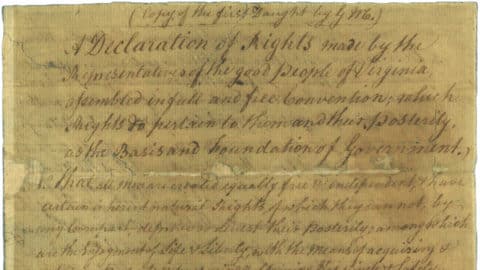 (Copy of the first Daught by G M.)
A Declaration of Rights made by the
Representatives of the good People of Virginia,
assembled in full and free Convention; which
Rights do pertain to them and their Posterity,
as the Basis and Foundation of Government.
1. That all men are created equally free & independent, & have
certain inherent natural Rights, of which they can not, by
any Compact, deprive or divest their Posterity; among which
are the Enjoyment of Life & Liberty, with the Means of acquiring &